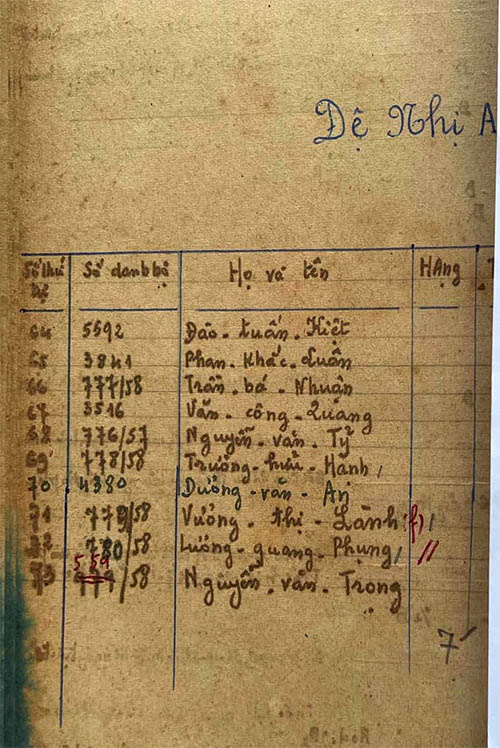 Đệ Nhị A
Số thứ tự Số danh bộ Họ và tên Hạng
64 5592 Đào - Tuấn - Kiệt
65 3841 Phan - Khắc - Luân
66 777/58 Trần - bá - Nhuận
67 3516 Văn - công - Quang
68 776/57 Nguyễn - văn - Tý
69 778/58 Trương - hữu - Hạnh
70 4380 Dương - văn - An
71 779/58 Vương - thị - Lành (f)
72 780/58 Lương - quang - Phụng
73 559 /58 Nguyễn - văn - Trọng
7